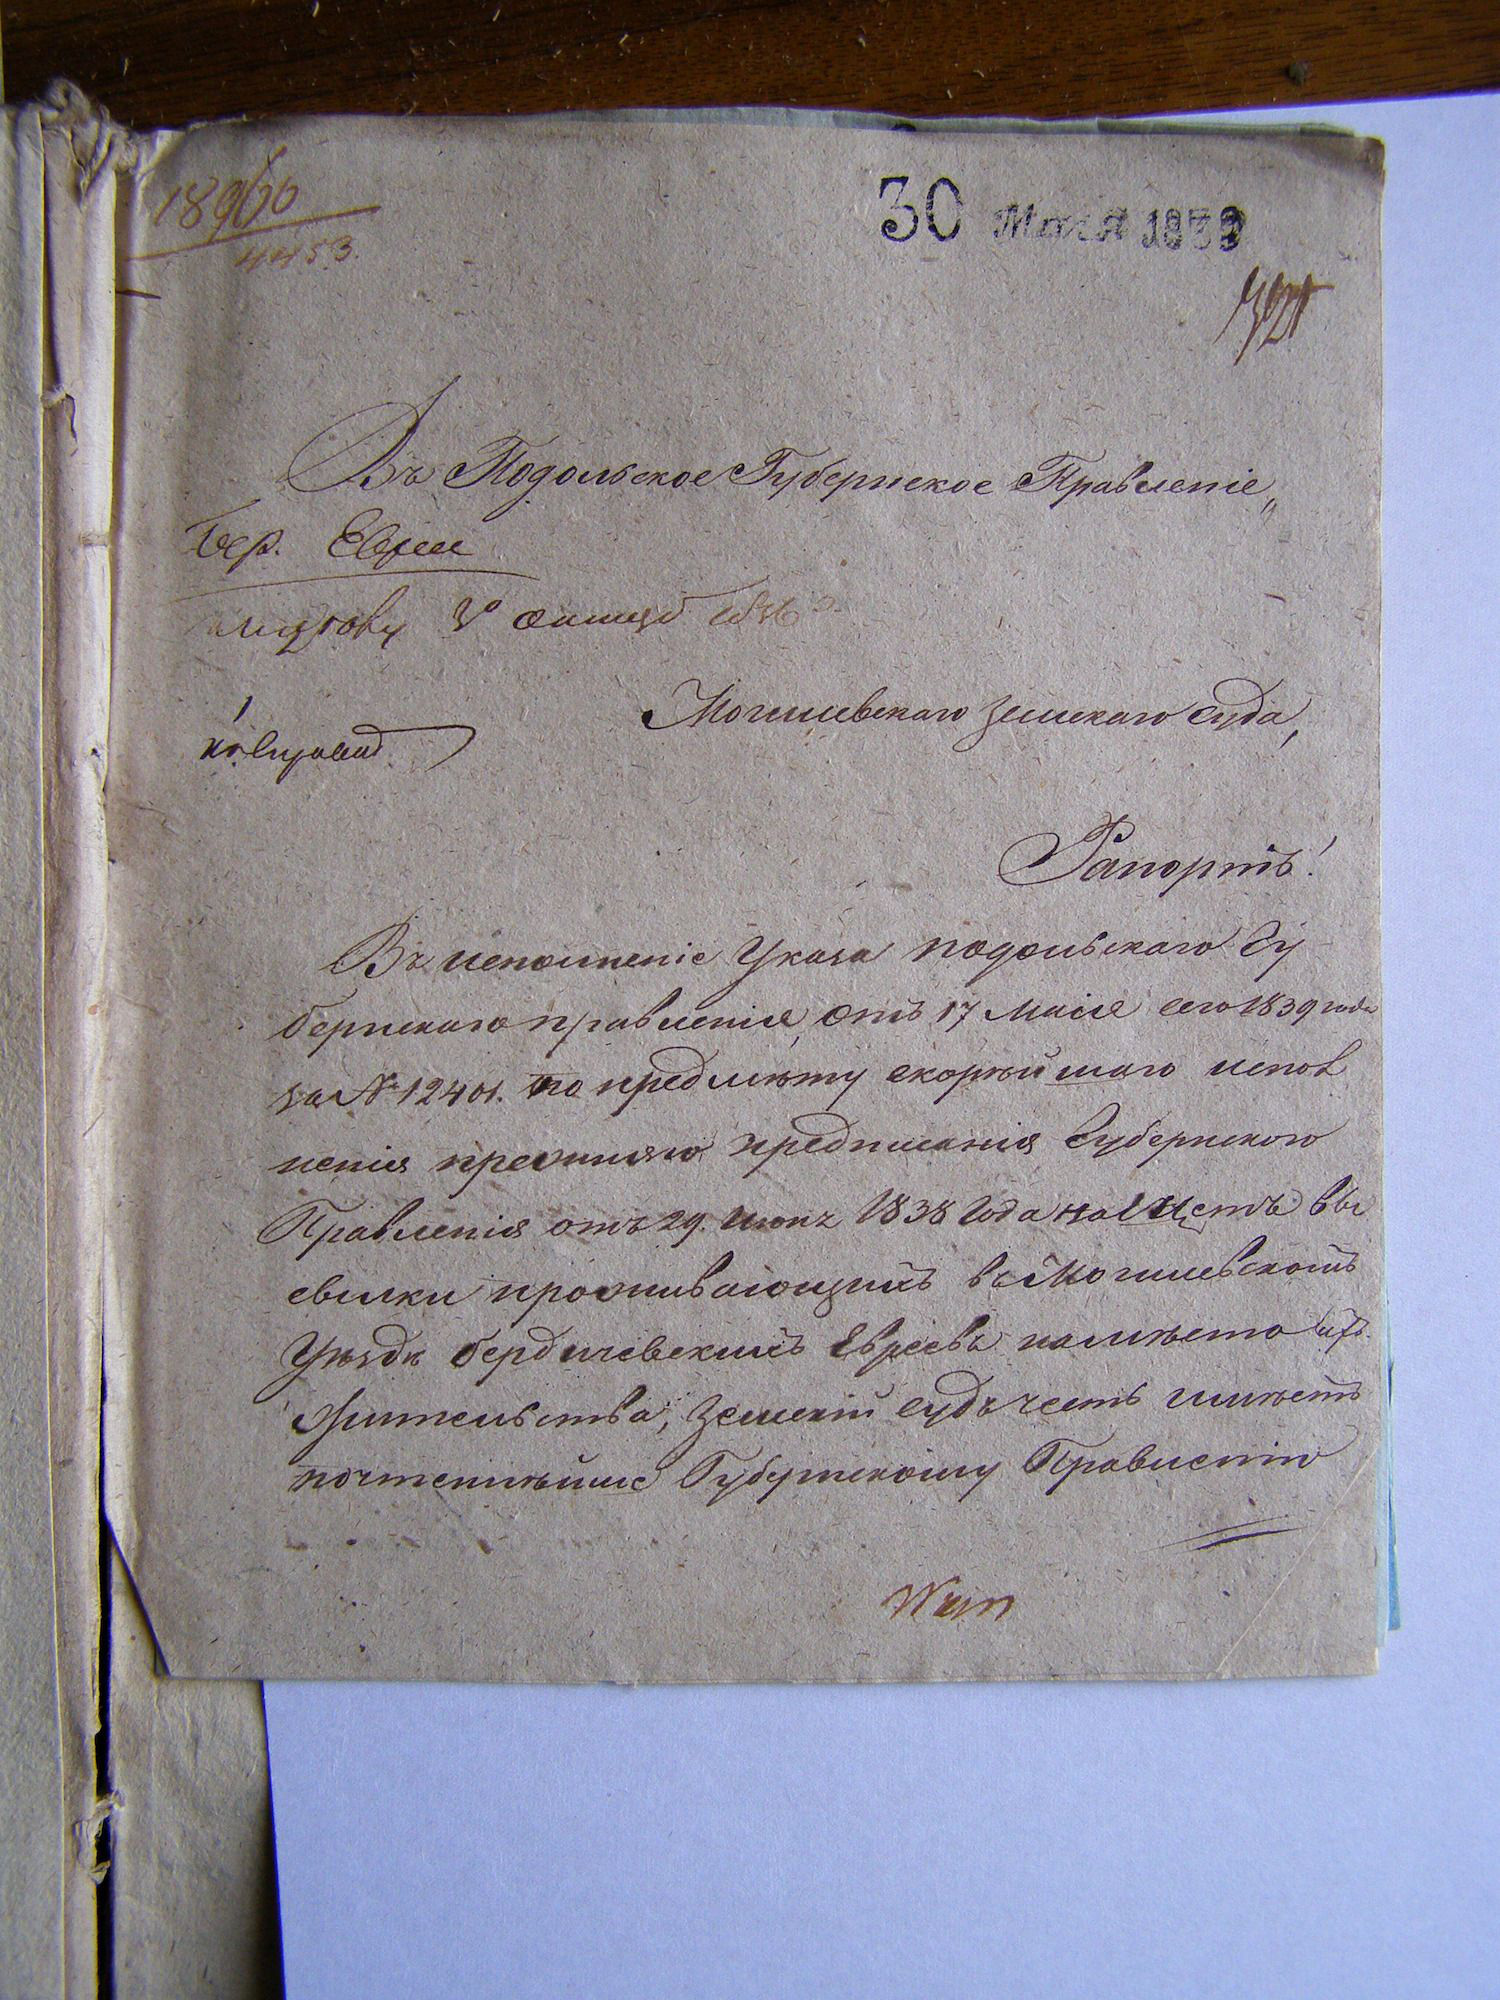 18960
4453.
30 Мая 1839
Въ Подольское Губернское Правленіе„
Бер. Евреи
Могилевскаго Земскаго Суда,
Рапортъ!
Въ исполненіе Указа подольскаго Гу
бернскаго правленія, отъ 17 Маія сего 1839 года
за № 12401. по предмѣту скорѣйшаго испол
ненія прежняго предписанія Губернского
Правленія отъ 29. Июня 1838 Года на щетъ вы
сылки проживающихъ въ Могилевскомъ
Уѣздѣ бердичевскихъ Евреевъ на мѣсто ихъ
Жительства, Земскій судъ честь имѣетъ
почтеннѣйше Губернскому Правленію